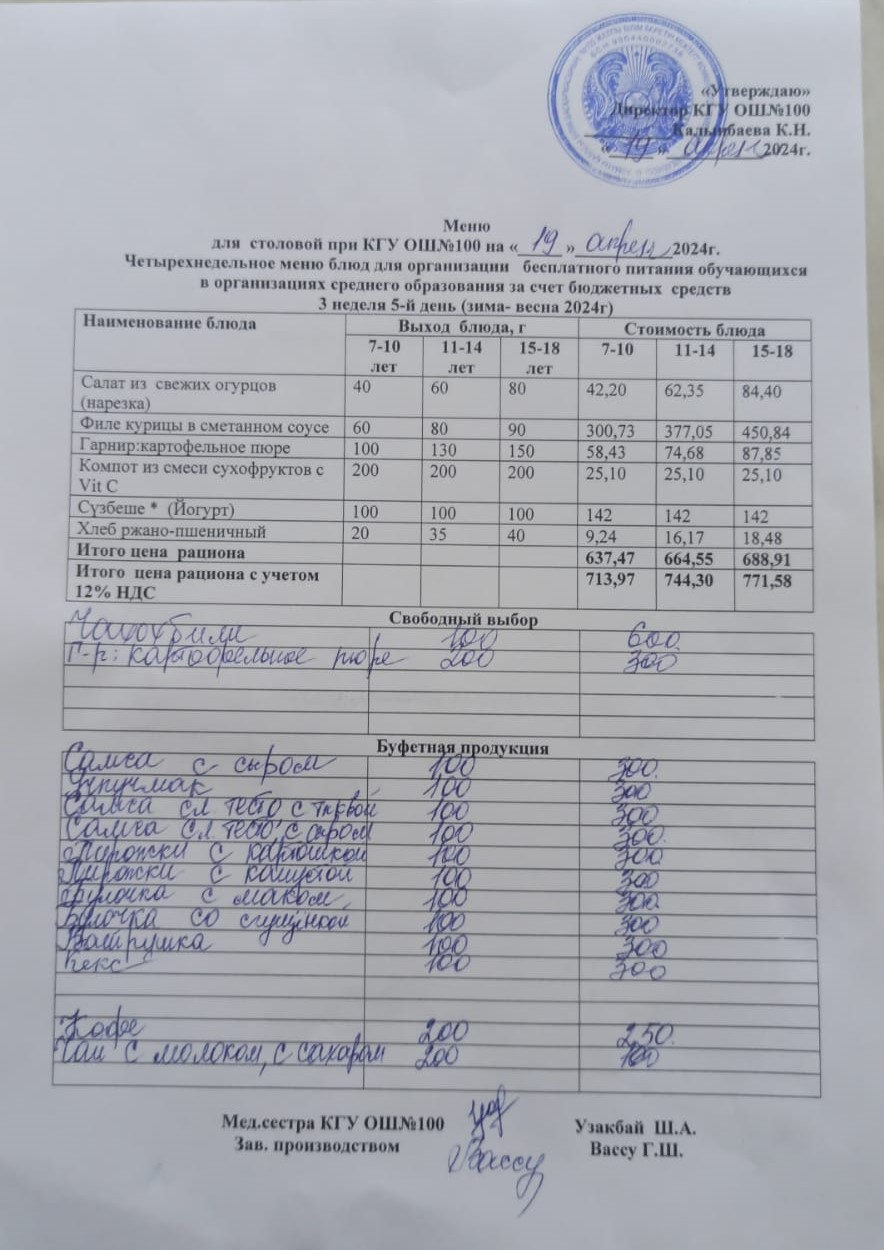 «Утверждаю»
Директор КГУ ОШ№100
Калынбаева К.Н.
« 19 » апрель 2024г.
Меню
для столовой при КГУ ОШ№100 на « 19 » апрель 2024г.
Четырехнедельное меню блюд для организации бесплатного питания обучающихся
в организациях среднего образования за счет бюджетных средств
3 неделя 5-й день (зима- весна 2024г)
Наименование блюда Выход блюда, г Стоимость блюда
7-10 лет 11-14 лет 15-18 лет 7-10 11-14 15-18
Салат из свежих огурцов (нарезка) 40 60 80 42,20 62,35 84,40
Филе курицы в сметанном соусе 60 80 90 300,73 377,05 450,84
Гарнир:картофельное пюре 100 130 150 58,43 74,68 87,85
Компот из смеси сухофруктов с Vit C 200 200 200 25,10 25,10 25,10
Сүзбеше * (Йогурт) 100 100 100 142 142 142
Хлеб ржано-пшеничный 20 35 40 9,24 16,17 18,48
Итого цена рациона 637,47 664,55 688,91
Итого цена рациона с учетом 12% НДС 713,97 744,30 771,58
Свободный выбор
Чахохбили 100 600
Г-р: картофельное пюре 200 300
Буфетная продукция
Самса с сыром 100 300
Үчпучмак 100 300
Самса сл. тесто с 100 300
Самса сл. тесто, с сыром 100 300
Пирожки с картошкой 100 300
Пирожки с капустой 100 300
Булочка с маком 100 300
Булочка со сгущенкой 100 300
Ватрушка 100 300
Кекс 100 300
Кофе 200 250
Чай с молоком, с сахаром 200 100
Мед.сестра КГУ ОШ№100 Узакбай Ш.А.
Зав. производством Вассу Вассу Г.Ш.